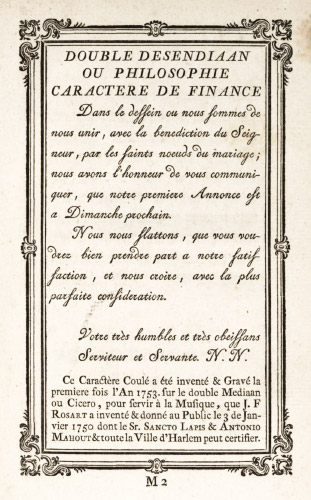 DOUBLE DESENDIAAN
OU PHILOSOPHIE
CARACTERE DE FINANCE
Dans le deſſein ou nous ſommes de
nous unir, avec la benediction du Seig-
neur, par les ſaints noeuds du mariage;
nous avons l'honneur de vous communi-
quer, que notre premiere Annonce eſt
a Dimanche prochain.
Nous nous flattons, que vous vou-
drez bien prendre part a notre ſatiſ-
faction, et nous croire, avec la plus
parfaite conſideration.
Votre très humbles et très obeiſſans
Serviteur et Servante. N. N.
Ce Caractère Coulé a été inventé & Gravé la
premiere fois l'An 1753. ſur le double Mediaan
ou Cicero, pour ſervir à la Muſique, que J. F
ROSART a inventé & donné au Public le 3 de Jan-
vier 1750 dont le Sr. SANCTO LAPIS & ANTONIO
MAHOUT & toute la Ville d'Harlem peut certifier.
M 2